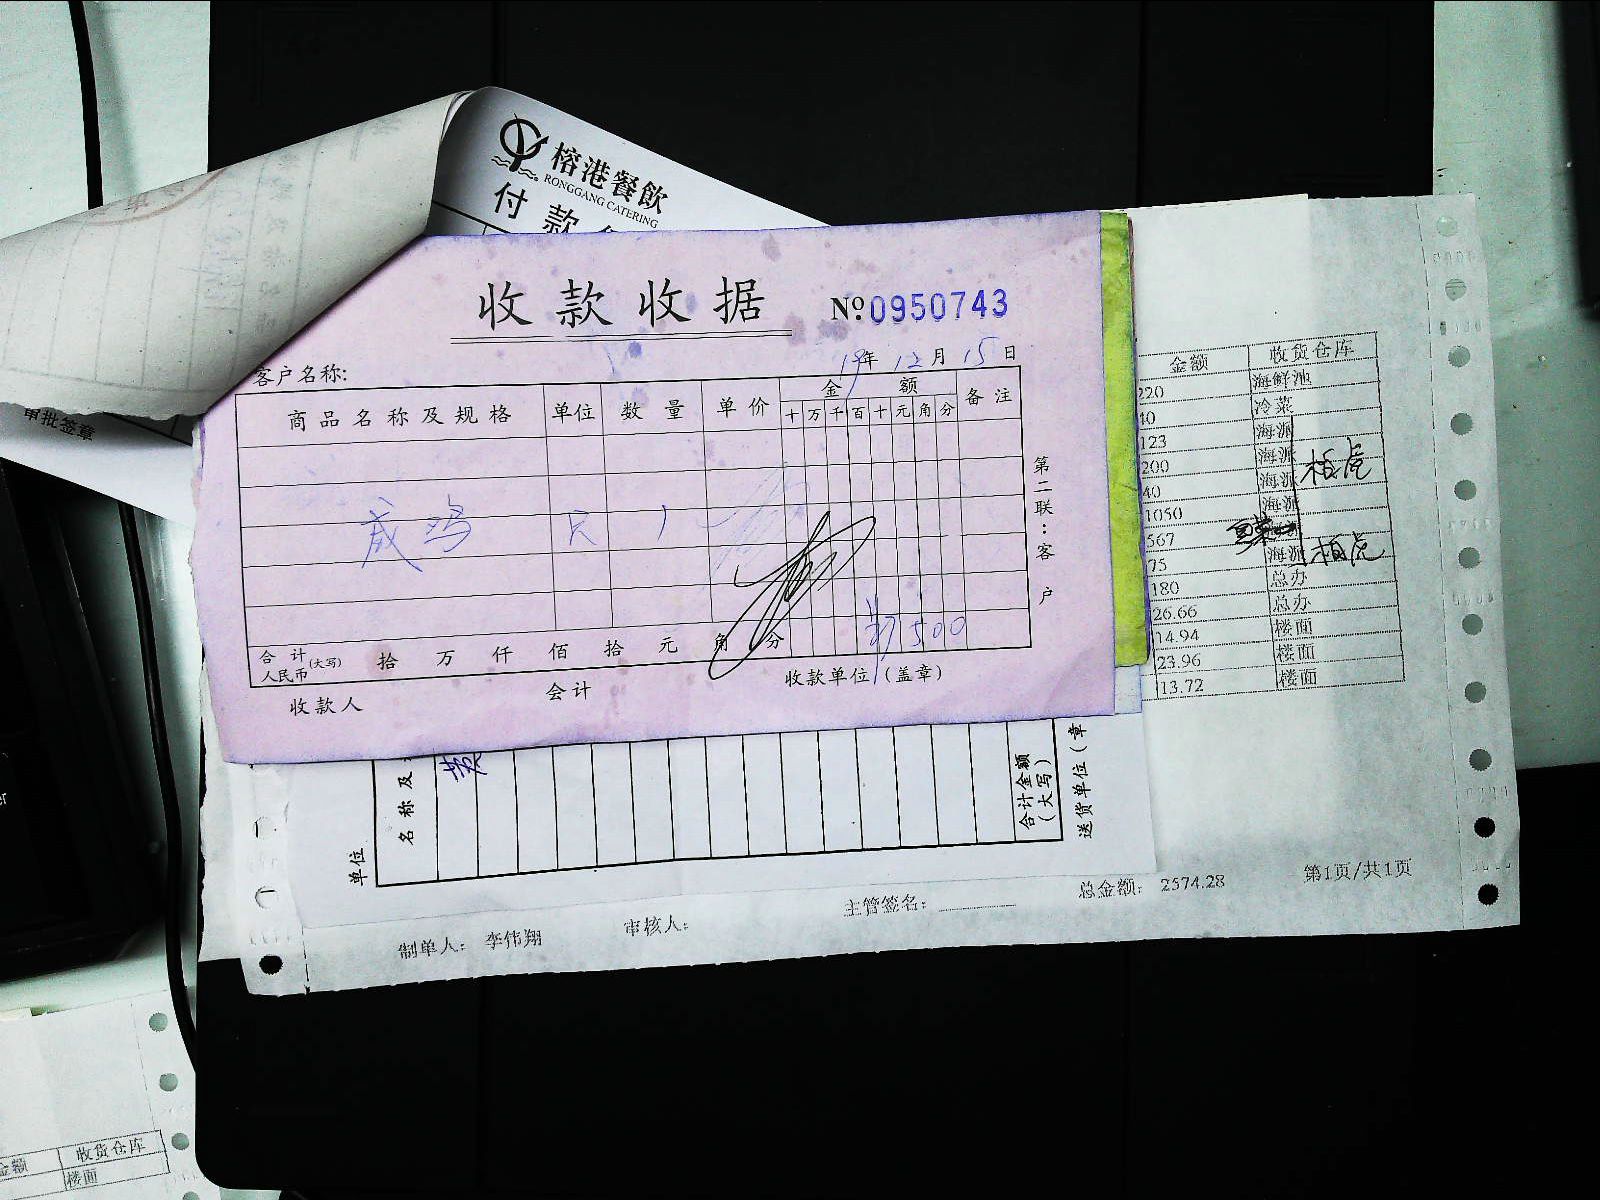 榕港餐飲
RONGGANG CATERING
付款
审批签章
收款收据 №0950743
19年12月15日
客户名称:
商品名称及规格 单位 数量 单价 金额 备注
十 万 千 百 十 元 角 分
只 1
500
合计 人民币(大写) 拾 万 仟 佰 拾 元 角 分
收款人 会计 收款单位(盖章)
第二联:客户
金额 收货仓库
220 海鲜池
40 冷菜
123 海派
200 海派
40 海派
1050 海派
567
75 海派
180 总办
26.66 总办
14.94 楼面
23.96 楼面
13.72 楼面
柏虎
柏虎
单位
名称及
合计金额(大写)
送货单位(章
制单人: 李伟翔 审核人: 主管签名: 总金额: 2574.28 第1页/共1页
金额 收货仓库
楼面